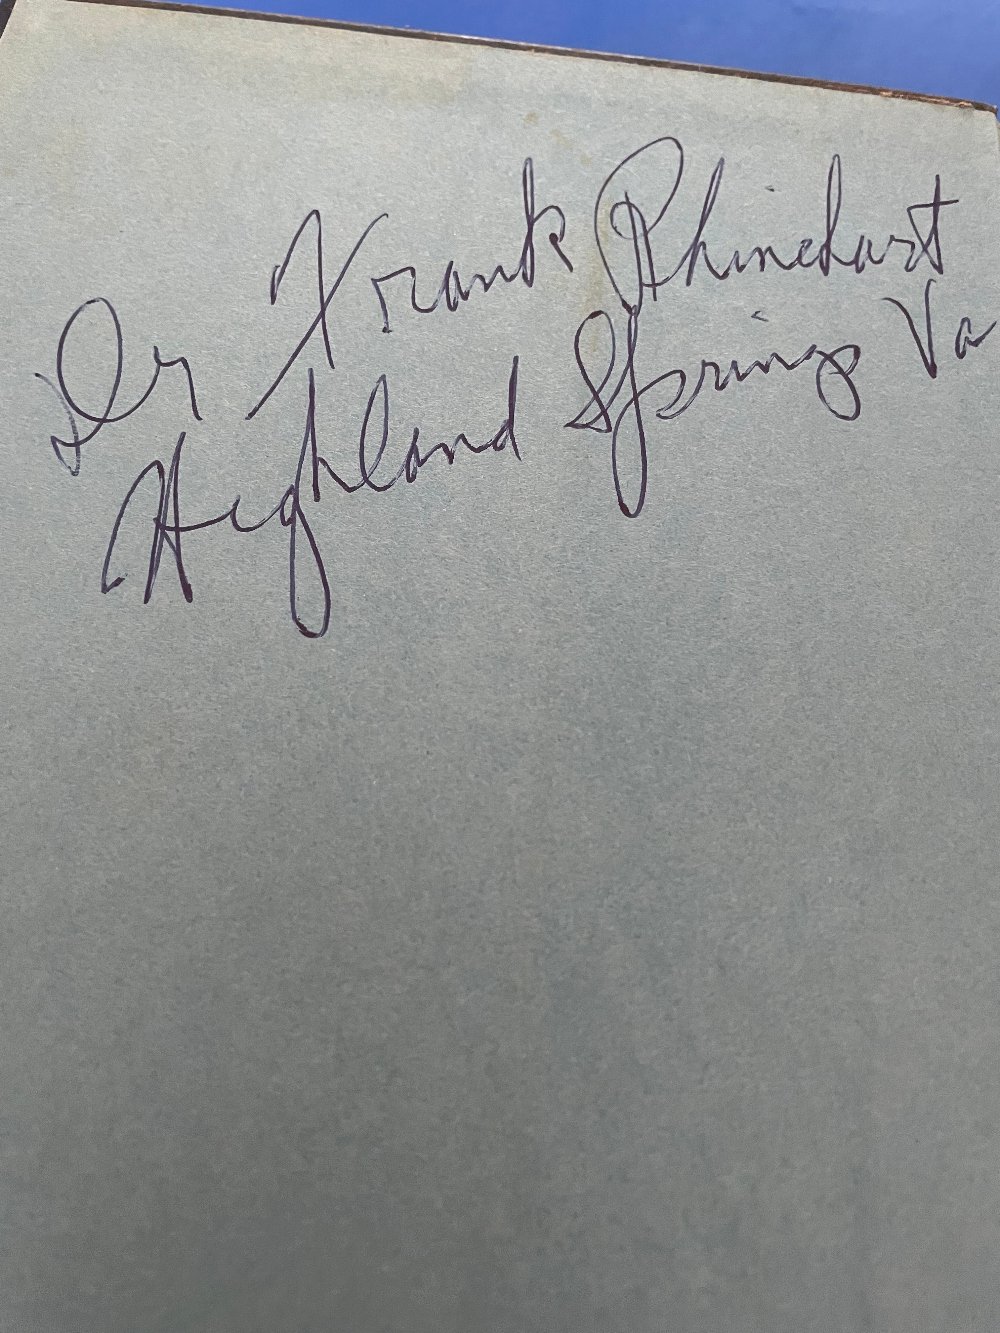 Dr Frank Rhinehart
Highland Spring Va